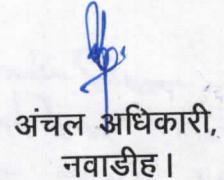 अंचल अधिकारी,
नवाडीह।